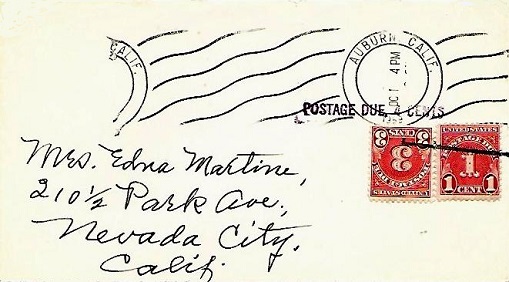 CALIF.
AUBURN, CALIF.
OCT
4 PM
POSTAGE DUE 4 CENTS
3
CENTS
UNITED STATES
UNITED STATES
POSTAGE DUE
1
1 CENT 1
Mrs. Edna Martine,
210½ Park Ave.,
Nevada City,
Calif.